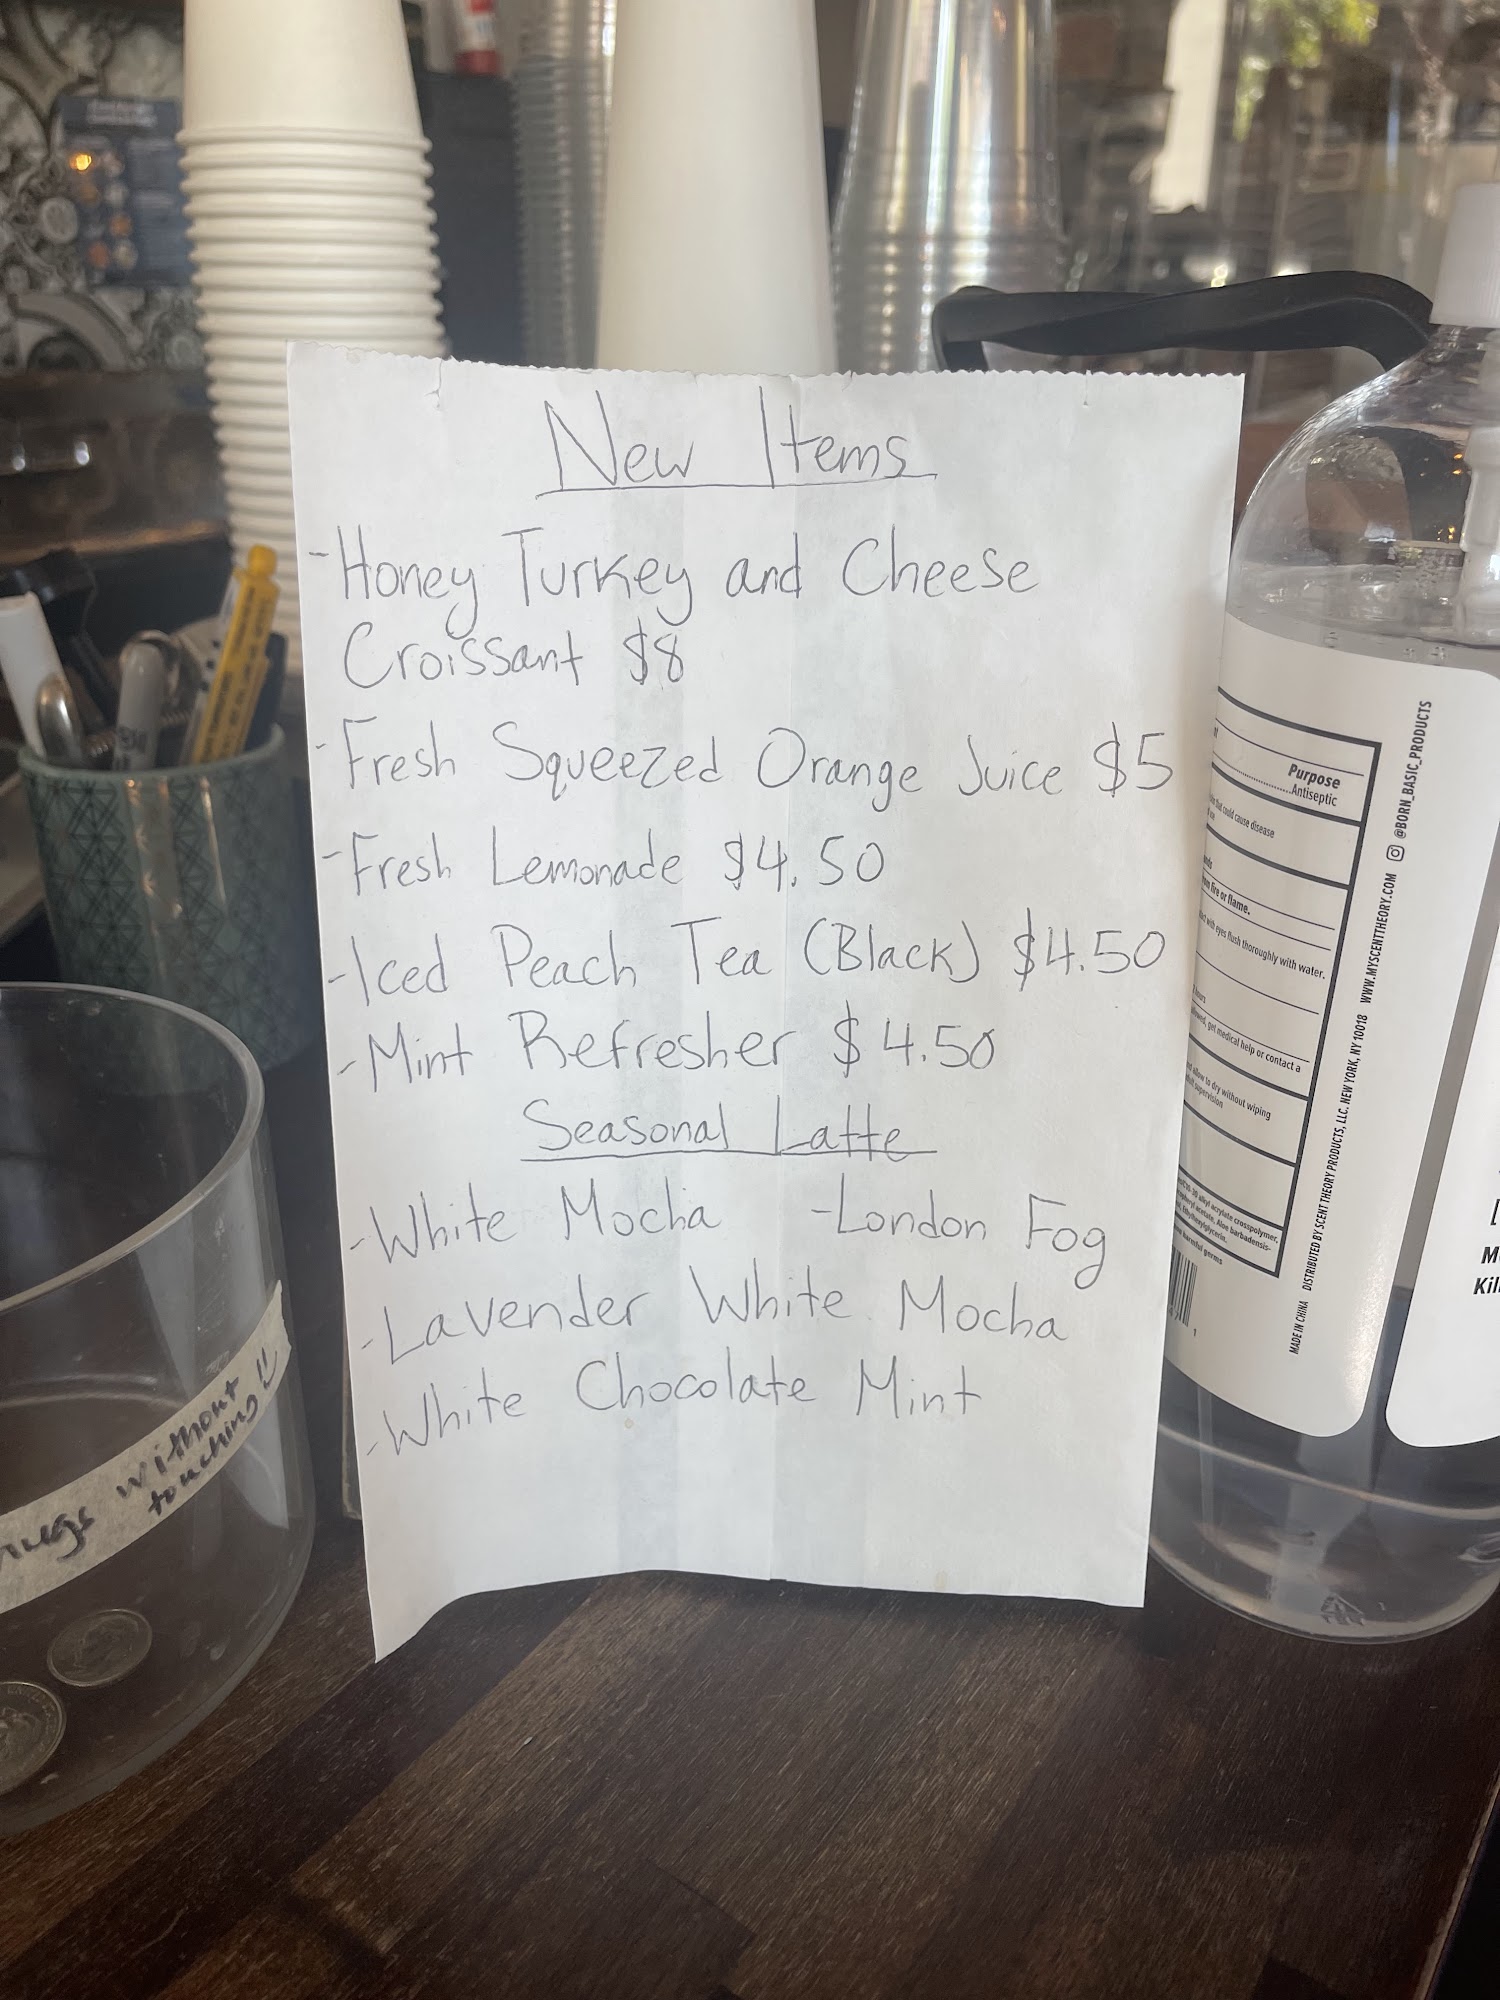 New Items
-Honey Turkey and Cheese
Croissant $8
-Fresh Squeezed Orange Juice $5
-Fresh Lemonade $4.50
-Iced Peach Tea (Black) $4.50
-Mint Refresher $4.50
Seasonal Latte
-White Mocha -London Fog
-Lavender White Mocha
-White Chocolate Mint
hugs without
touching!!
Purpose
Antiseptic
that could cause disease
from fire or flame.
with eyes flush thoroughly with water.
get medical help or contact a
allow to dry without wiping
supervision
harmful germs
MADE IN CHINA DISTRIBUTED BY SCENT THEORY PRODUCTS, LLC. NEW YORK, NY 10018 WWW.MYSCENTTHEORY.COM @BORN_BASIC_PRODUCTS